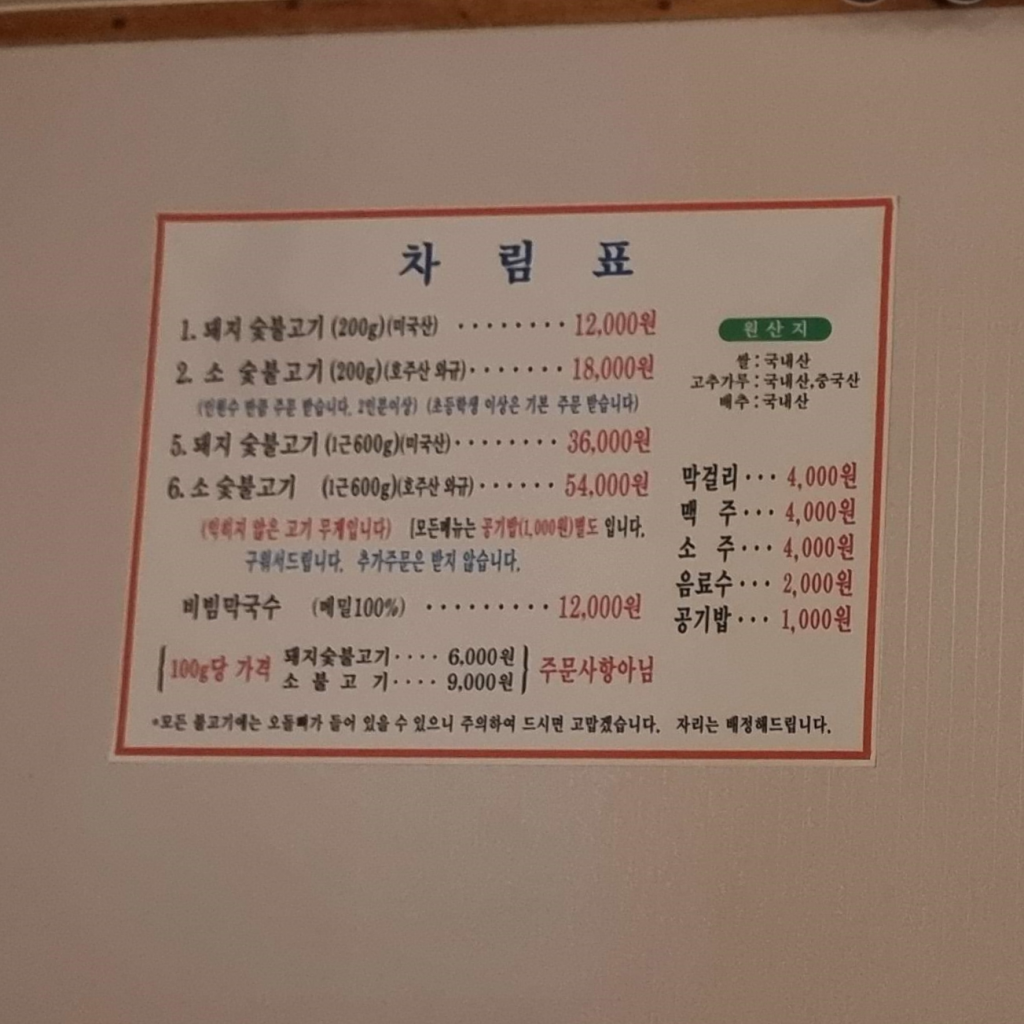 차 림 표
1. 돼지 숯불고기 (200g)(미국산) ········ 12,000원
2. 소 숯불고기 (200g)(호주산 와규)······· 18,000원
(인원수 만큼 주문 받습니다. 2인분이상) (초등학생 이상은 기본 주문 받습니다)
5. 돼지 숯불고기 (1근600g)(미국산)········ 36,000원
6. 소 숯불고기 (1근600g)(호주산 와규)······ 54,000원
(익히지 않은 고기 무게입니다) [모든메뉴는 공기밥(1,000원)별도 입니다.
구워서드립니다. 추가주문은 받지 않습니다.
비빔막국수 (메밀100%) ········· 12,000원
100g당 가격
돼지숯불고기···· 6,000원
소 불 고 기···· 9,000원
주문사항아님
원산지
쌀:국내산
고추가루:국내산,중국산
배추:국내산
막걸리··· 4,000원
맥 주··· 4,000원
소 주··· 4,000원
음료수··· 2,000원
공기밥··· 1,000원
*모든 불고기에는 오돌뼈가 들어 있을 수 있으니 주의하여 드시면 고맙겠습니다. 자리는 배정해드립니다.